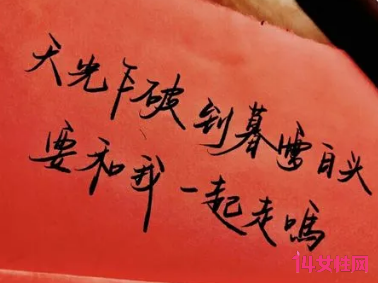 天光乍破到暮雪白头
要和我一起走嗎
14女性网